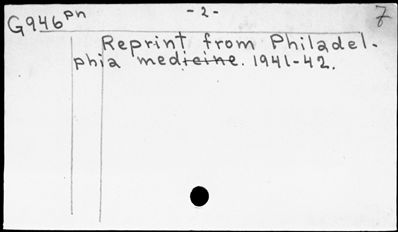 G946pn - 2 - 7
Reprint from Philadel-
phia medicine. 1941-42.